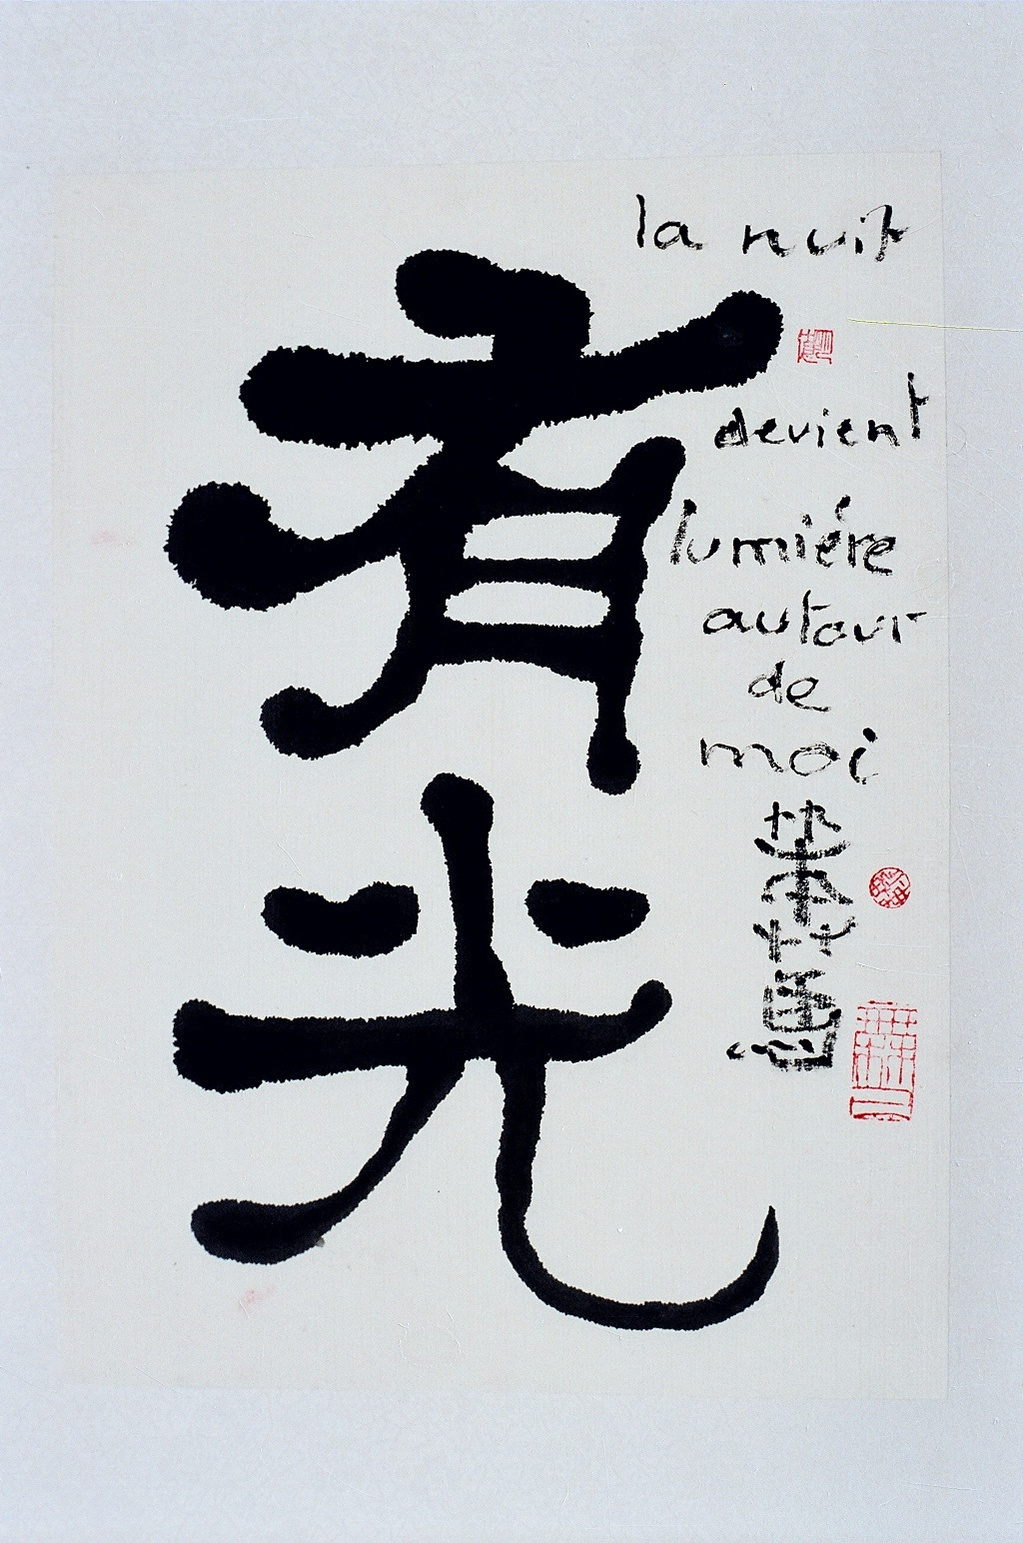 有光
la nuit
devient
lumiére
autour
de
moi